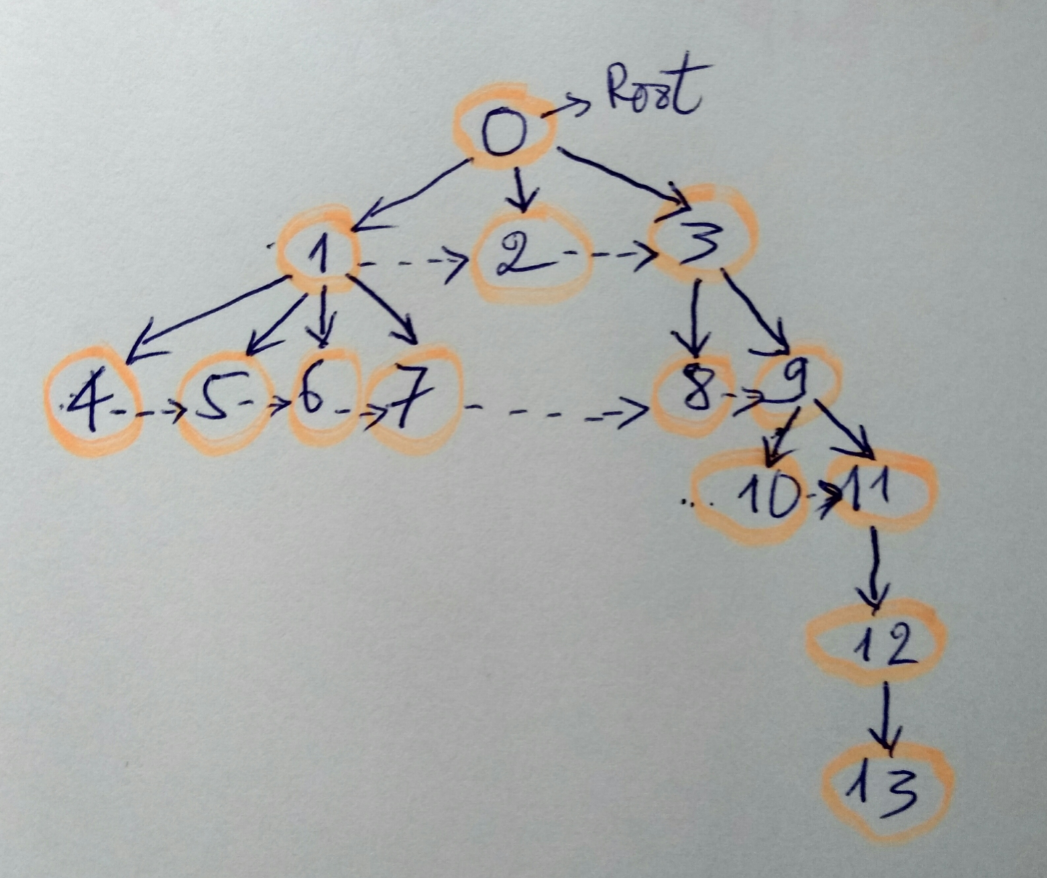 0 → Root
1 2 3
4 5 6 7 8 9
10 11
12
13